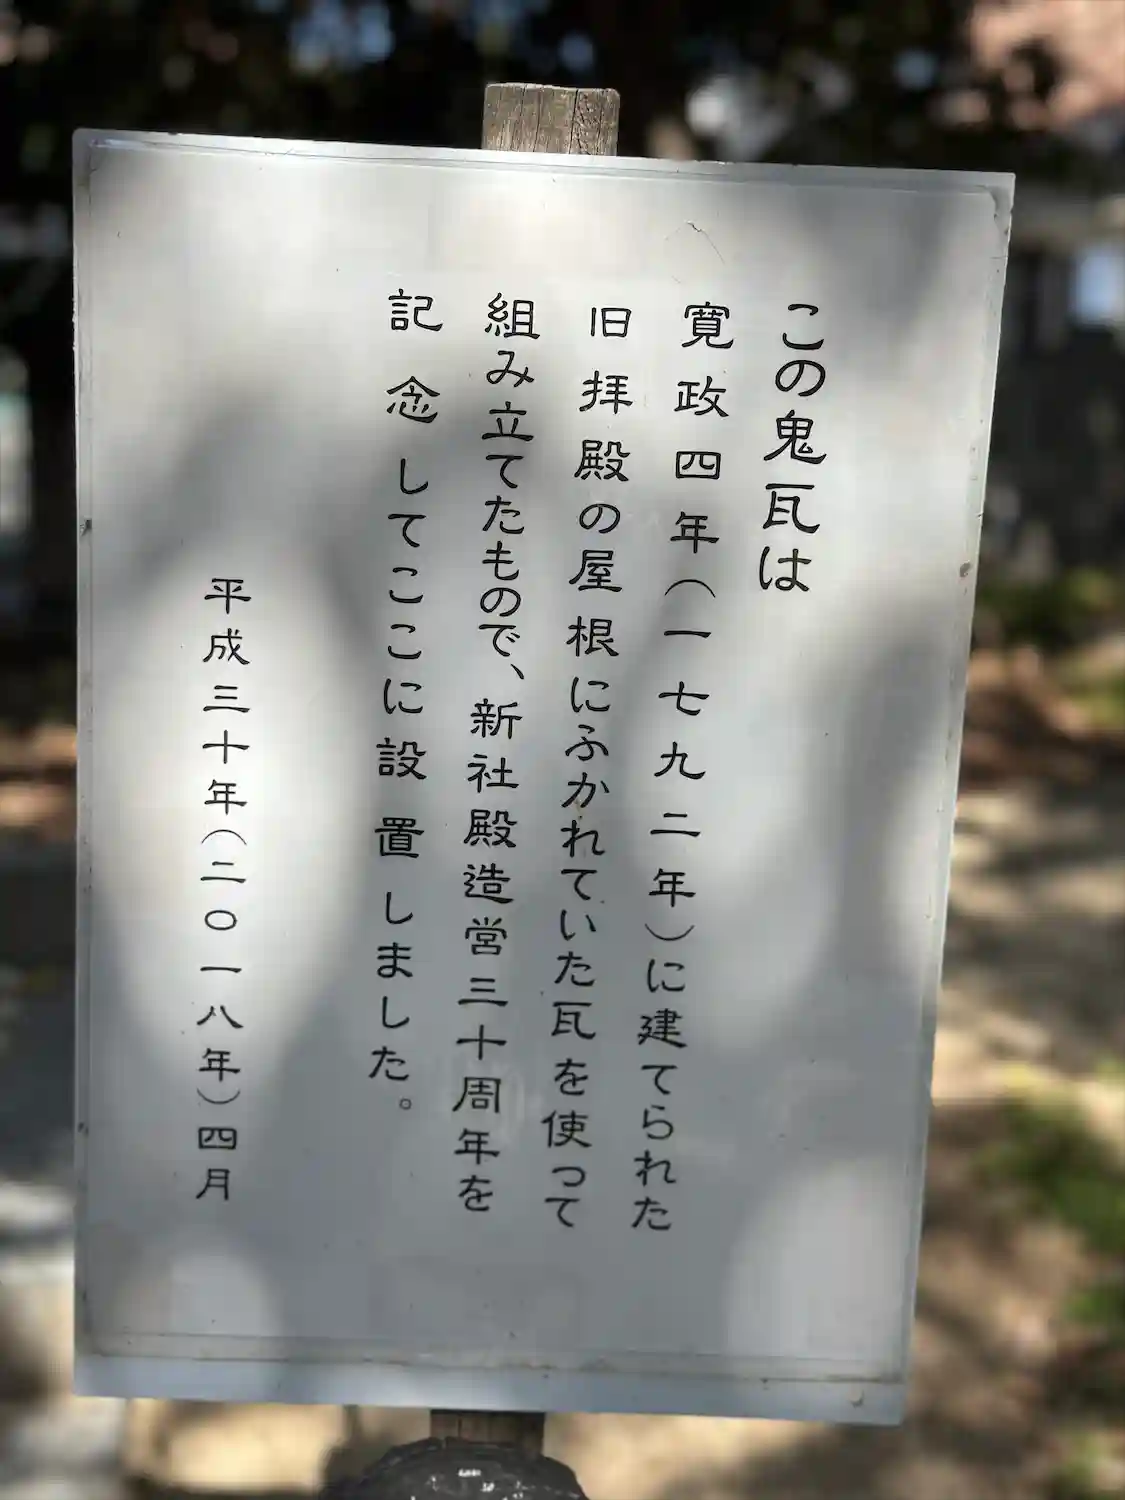 この鬼瓦は
寛政四年(一七九二年)に建てられた
旧拝殿の屋根にふかれていた瓦を使って
組み立てたもので、新社殿造営三十周年を
記念してここに設置しました。
平成三十年(二〇一八年)四月